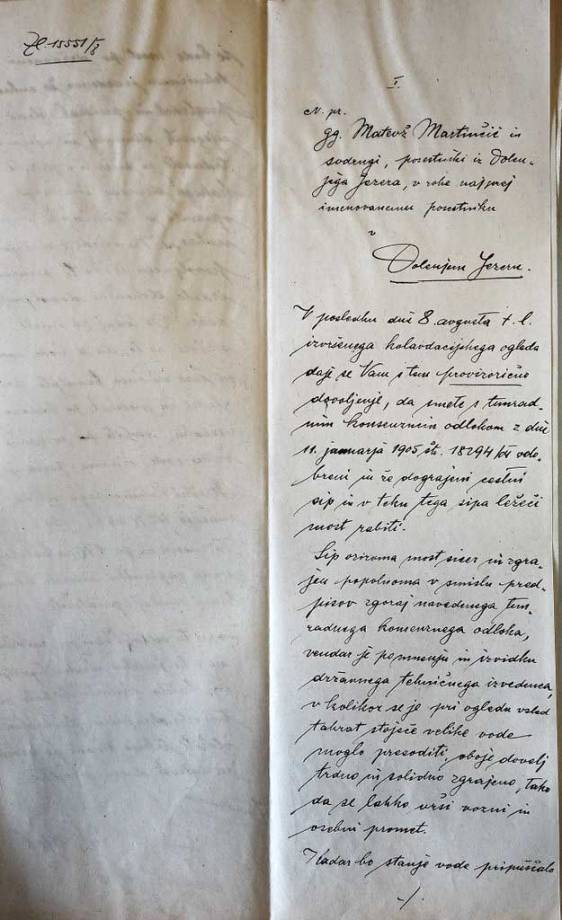 Zl. 15551/8
I.
N. pr.
gg. Matevž Martinčič in
sodrugi, posestniki iz Dolen-
jega Jezera, v roke najprej
imenovanemu posestniku
v
Dolenjem Jezeru.
V posledku dné 8. avgusta t. l.
izvršenega kolavdacijskega ogleda
daje se Vam s tem provizorično
dovoljenje, da smete s tuurad-
nim konsenznim odlokom z dné
11. januarja 1905 št. 18294/04 odo-
breni in že dograjeni cestni
sip in v teku tega sipa ležeči
most rabiti.
Sip oziroma most sicer in zgra-
jen popolnoma v smislu pred-
pisov zgoraj navedenega tuu-
radnega konsenznega odloka,
vendar je po mnenju in izvidku
državnega tehničnega izvedenca,
v kolikor se je pri ogledu vsled
takrat stoječe velike vode
moglo presoditi, oboje dovolj
trdno in solidno zgrajeno, tako
da se lahko vrši vozni in
osebni promet.
Kadar bo stanje vode pripuščalo
./.